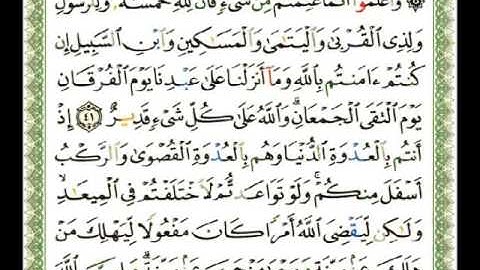 وَٱعۡلَمُوٓاْ أَنَّمَا غَنِمۡتُم مِّن شَيۡءٖ فَأَنَّ لِلَّهِ خُمُسَهُۥ وَلِلرَّسُولِ
وَلِذِي ٱلۡقُرۡبَىٰ وَٱلۡيَتَٰمَىٰ وَٱلۡمَسَٰكِينِ وَٱبۡنِ ٱلسَّبِيلِ إِن
كُنتُمۡ ءَامَنتُم بِٱللَّهِ وَمَآ أَنزَلۡنَا عَلَىٰ عَبۡدِنَا يَوۡمَ ٱلۡفُرۡقَانِ
يَوۡمَ ٱلۡتَقَى ٱلۡجَمۡعَانِۗ وَٱللَّهُ عَلَىٰ كُلِّ شَيۡءٖ قَدِيرٌ ٤١ إِذۡ
أَنتُم بِٱلۡعُدۡوَةِ ٱلدُّنۡيَا وَهُم بِٱلۡعُدۡوَةِ ٱلۡقُصۡوَىٰ وَٱلرَّكۡبُ
أَسۡفَلَ مِنكُمۡۚ وَلَوۡ تَوَاعَدتُّمۡ لَٱخۡتَلَفۡتُمۡ فِي ٱلۡمِيعَٰدِ
وَلَٰكِن لِّيَقۡضِيَ ٱللَّهُ أَمۡرٗا كَانَ مَفۡعُولٗا لِّيَهۡلِكَ مَنۡ